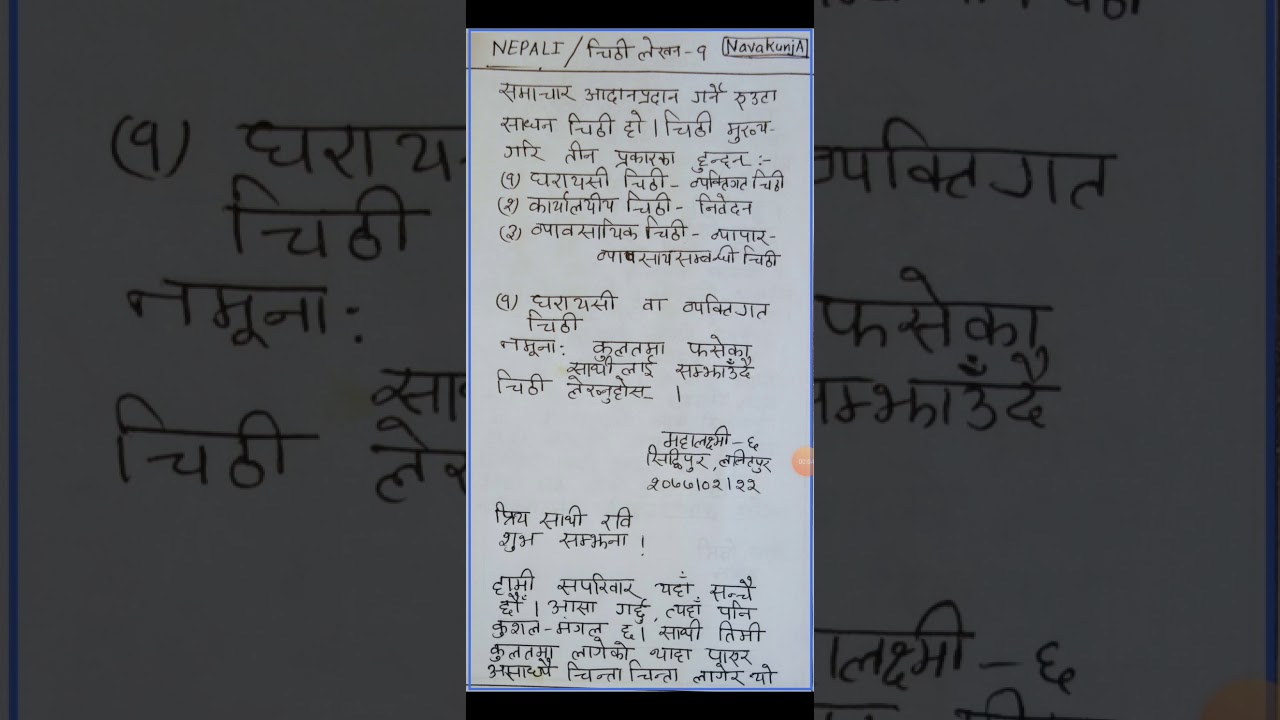 NEPALI / चिठी लेखन - १ NavakunjA
समाचार आदानप्रदान गर्ने एउटा
साधन चिठी हो । चिठी मुख्य-
गरि तीन प्रकारका हुन्छन् :-
(१) घरायसी चिठी - व्यक्तिगत चिठी
(२) कार्यालयीय चिठी - निवेदन
(३) व्यावसायिक चिठी - व्यापार-
व्यावसायसम्बन्धी चिठी
(१) घरायसी वा व्यक्तिगत
चिठी
नमूना: कुलतमा फसेका
साथीलाई सम्झाउँदै
चिठी लेख्नुहोस् ।
महालक्ष्मी - ६
सिद्धिपुर, ललितपुर
२०७७।०२।२२
प्रिय साथी रवि
शुभ सम्झना !
हामी सपरिवार यहाँ सन्चै
छौँ । आसा गर्छु, त्यहाँ पनि
कुशल-मंगल छ। साथी तिमी
कुलतमा लागेको थाहा पाएर
असाध्यै चिन्ता चिन्ता लागेर यो